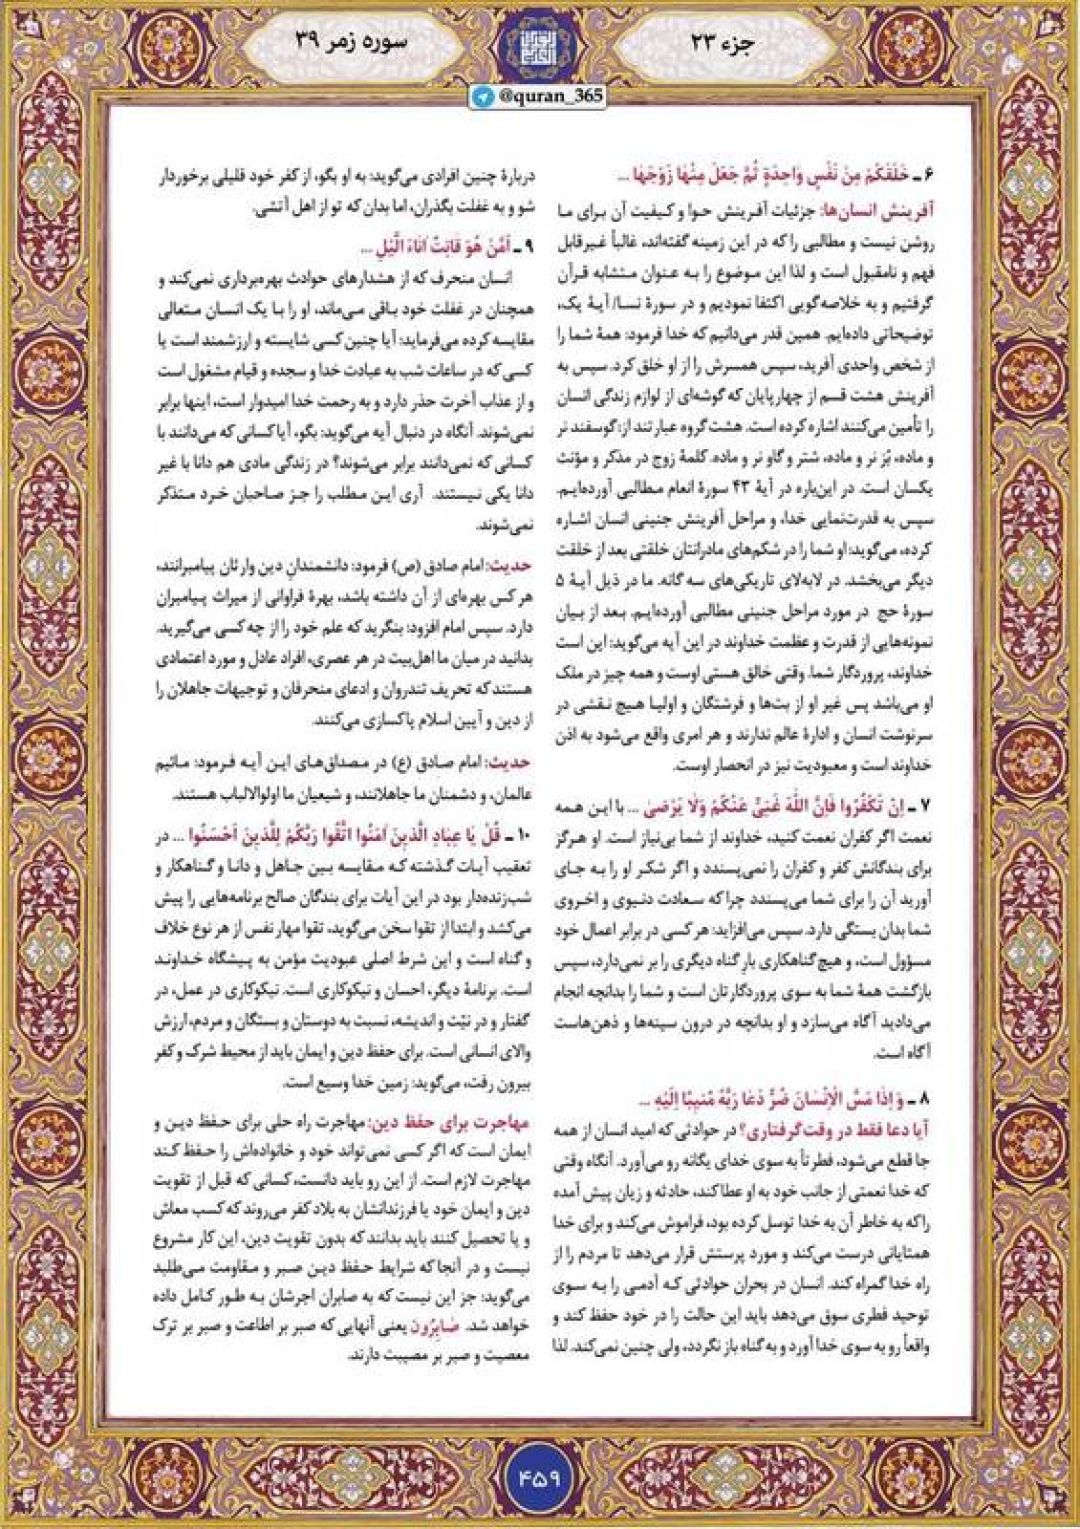 جزء ۲۳
سوره زمر ۳۹
@quran_365
۶ ـ خَلَقَكُمْ مِنْ نَفْسٍ وَاحِدَةٍ ثُمَّ جَعَلَ مِنْهَا زَوْجَهَا ...
آفرینش انسان‌ها: جزئیات آفرینش حوا و کیفیت آن برای ما
روشن نیست و مطالبی را که در این زمینه گفته‌اند، غالباً غیرقابل
فهم و نامقبول است و لذا این موضوع را به عنوان متشابه قرآن
گرفتیم و به خلاصه‌گویی اکتفا نمودیم و در سورهٔ نسا/ آیهٔ یک،
توضیحاتی داده‌ایم. همین قدر می‌دانیم که خدا فرمود: همهٔ شما را
از شخص واحدی آفرید، سپس همسرش را از او خلق کرد. سپس به
آفرینش هشت قسم از چهارپایان که گوشه‌ای از لوازم زندگی انسان
را تأمین می‌کنند اشاره کرده است. هشت گروه عبارتند از: گوسفند نر
و ماده، بُز نر و ماده، شتر و گاو نر و ماده. کلمهٔ زوج در مذکر و مؤنث
یکسان است. در این‌باره در آیهٔ ۴۳ سورهٔ انعام مطالبی آورده‌ایم.
سپس به قدرت‌نمایی خدا، و مراحل آفرینش جنینی انسان اشاره
کرده، می‌گوید: او شما را در شکم‌های مادرانتان خلقتی بعد از خلقت
دیگر می‌بخشد. در لابه‌لای تاریکی‌های سه گانه. ما در ذیل آیهٔ ۵
سورهٔ حج در مورد مراحل جنینی مطالبی آورده‌ایم. بعد از بیان
نمونه‌هایی از قدرت و عظمت خداوند در این آیه می‌گوید: این است
خداوند، پروردگار شما. وقتی خالق هستی اوست و همه چیز در ملک
او می‌باشد پس غیر او از بت‌ها و فرشتگان و اولیا هیچ نقشی در
سرنوشت انسان و ادارهٔ عالم ندارند و هر امری واقع می‌شود به اذن
خداوند است و معبودیت نیز در انحصار اوست.
۷ ـ اِنْ تَكْفُرُوا فَإِنَّ اللّٰهَ غَنِيٌّ عَنْكُمْ وَلَا يَرْضىٰ ... با این همه
نعمت اگر کفران نعمت کنید، خداوند از شما بی‌نیاز است. او هرگز
برای بندگانش کفر و کفران را نمی‌پسندد و اگر شکر او را به جای
آورید آن را برای شما می‌پسندد چرا که سعادت دنیوی و اخروی
شما بدان بستگی دارد. سپس می‌افزاید: هر کسی در برابر اعمال خود
مسؤول است، و هیچ گناهکاری بار گناه دیگری را بر نمی‌دارد، سپس
بازگشت همهٔ شما به سوی پروردگارتان است و شما را بدانچه انجام
می‌دادید آگاه می‌سازد و او بدانچه در درون سینه‌ها و ذهن‌هاست
آگاه است.
۸ ـ وَ اِذَا مَسَّ الْاِنْسَانَ ضُرٌّ دَعَا رَبَّهُ مُنِيبًا اِلَيْهِ ...
آیا دعا فقط در وقت گرفتاری؟ در حوادثی که امید انسان از همه
جا قطع می‌شود، فطرتاً به سوی خدای یگانه رو می‌آورد. آنگاه وقتی
که خدا نعمتی از جانب خود به او عطا کند، حادثه و زیان پیش آمده
را که به خاطر آن به خدا توسل کرده بود، فراموش می‌کند و برای خدا
همتایانی درست می‌کند و مورد پرستش قرار می‌دهد تا مردم را از
راه خدا گمراه کند. انسان در بحران حوادثی که آدمی را به سوی
توحید فطری سوق می‌دهد باید این حالت را در خود حفظ کند و
واقعاً رو به سوی خدا آورد و به گناه باز نگردد، ولی چنین نمی‌کند. لذا
دربارهٔ چنین افرادی می‌گوید: به او بگو، از کفر خود قلیلی برخوردار
شو و به غفلت بگذران، اما بدان که تو از اهل آتشی.
۹ ـ اَمَّنْ هُوَ قَانِتٌ اٰنَاءَ الَّيْلِ ...
انسان منحرف که از هشدارهای حوادث بهره‌برداری نمی‌کند و
همچنان در غفلت خود باقی می‌ماند، او را با یک انسان متعالی
مقایسه کرده می‌فرماید: آیا چنین کسی شایسته و ارزشمند است یا
کسی که در ساعات شب به عبادت خدا و سجده و قیام مشغول است
و از عذاب آخرت حذر دارد و به رحمت خدا امیدوار است، اینها برابر
نمی‌شوند. آنگاه در دنبال آیه می‌گوید: بگو، آیا کسانی که می‌دانند با
کسانی که نمی‌دانند برابر می‌شوند؟ در زندگی مادی هم دانا با غیر
دانا یکی نیستند. آری این مطلب را جز صاحبان خرد متذکر
نمی‌شوند.
حدیث: امام صادق (ص) فرمود: دانشمندان دین وارثان پیامبرانند،
هر کس بهره‌ای از آن داشته باشد، بهرهٔ فراوانی از میراث پیامبران
دارد. سپس امام افزود: بنگرید که علم خود را از چه کسی می‌گیرید.
بدانید در میان ما اهل‌بیت در هر عصری، افراد عادل و مورد اعتمادی
هستند که تحریف تندروان و ادعای منحرفان و توجیهات جاهلان را
از دین و آیین اسلام پاکسازی می‌کنند.
حدیث: امام صادق (ع) در مصداق‌های این آیه فرمود: مائیم
عالمان، و دشمنان ما جاهلانند، و شیعیان ما اولوالالباب هستند.
۱۰ ـ قُلْ يَا عِبَادِ الَّذِينَ اٰمَنُوا اتَّقُوا رَبَّكُمْ لِلَّذِينَ اَحْسَنُوا ... در
تعقیب آیات گذشته که مقایسه بین جاهل و دانا و گناهکار و
شب‌زنده‌دار بود در این آیات برای بندگان صالح برنامه‌هایی را پیش
می‌کشد و ابتدا از تقوا سخن می‌گوید، تقوا مهار نفس از هر نوع خلاف
و گناه است و این شرط اصلی عبودیت مؤمن به پیشگاه خداوند
است. برنامهٔ دیگر، احسان و نیکوکاری است. نیکوکاری در عمل، در
گفتار و در نیّت و اندیشه، نسبت به دوستان و بستگان و مردم، ارزش
والای انسانی است. برای حفظ دین و ایمان باید از محیط شرک و کفر
بیرون رفت، می‌گوید: زمین خدا وسیع است.
مهاجرت برای حفظ دین: مهاجرت راه حلی برای حفظ دین و
ایمان است که اگر کسی نمی‌تواند خود و خانواده‌اش را حفظ کند
مهاجرت لازم است. از این رو باید دانست، کسانی که قبل از تقویت
دین و ایمان خود یا فرزندانشان به بلاد کفر می‌روند که کسب معاش
و یا تحصیل کنند باید بدانند که بدون تقویت دین، این کار مشروع
نیست و در آنجا که شرایط حفظ دین صبر و مقاومت می‌طلبد
می‌گوید: جز این نیست که به صابران اجرشان به طور کامل داده
خواهد شد. صَابِرُون یعنی آنهایی که صبر بر اطاعت و صبر بر ترک
معصیت و صبر بر مصیبت دارند.
۴۵۹